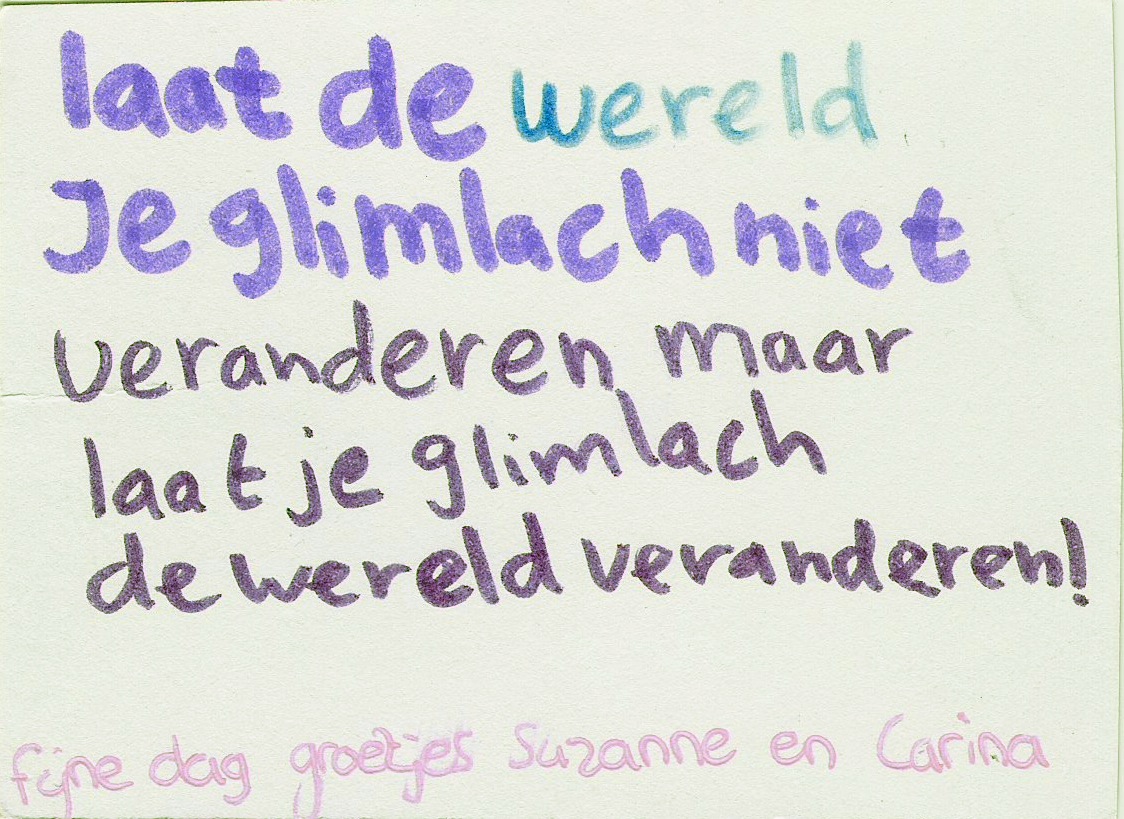 laat de wereld
Je glimlach niet
veranderen maar
laat je glimlach
de wereld veranderen!
fijne dag groetjes Suzanne en Carina